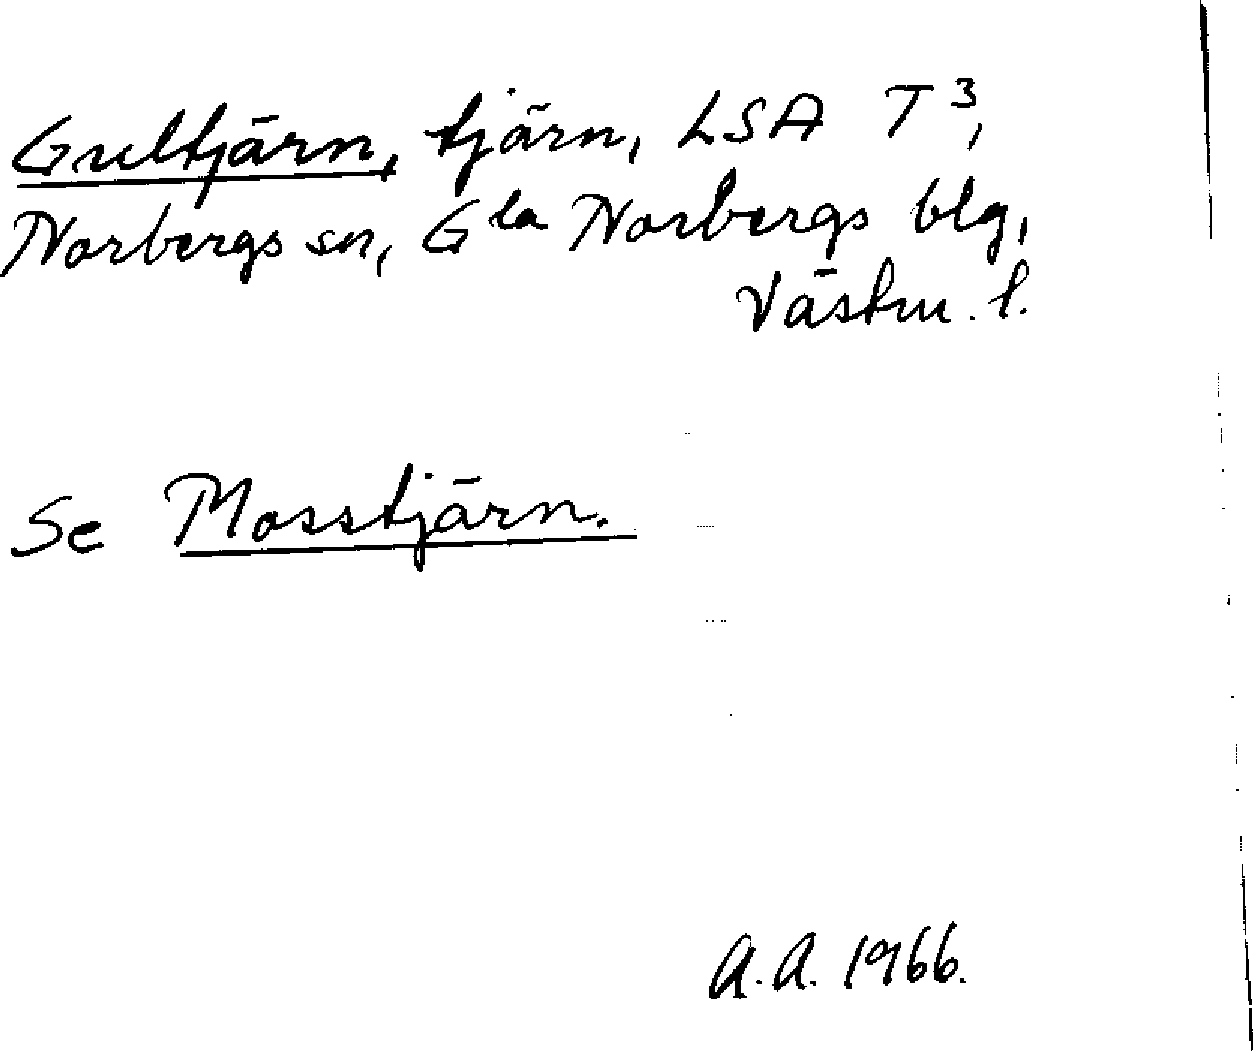 Gultjärn, tjärn, LSA T³,
Norbergs sn, Gla Norbergs blg,
Västm. l.
Se Mosstjärn.
A.A. 1966.